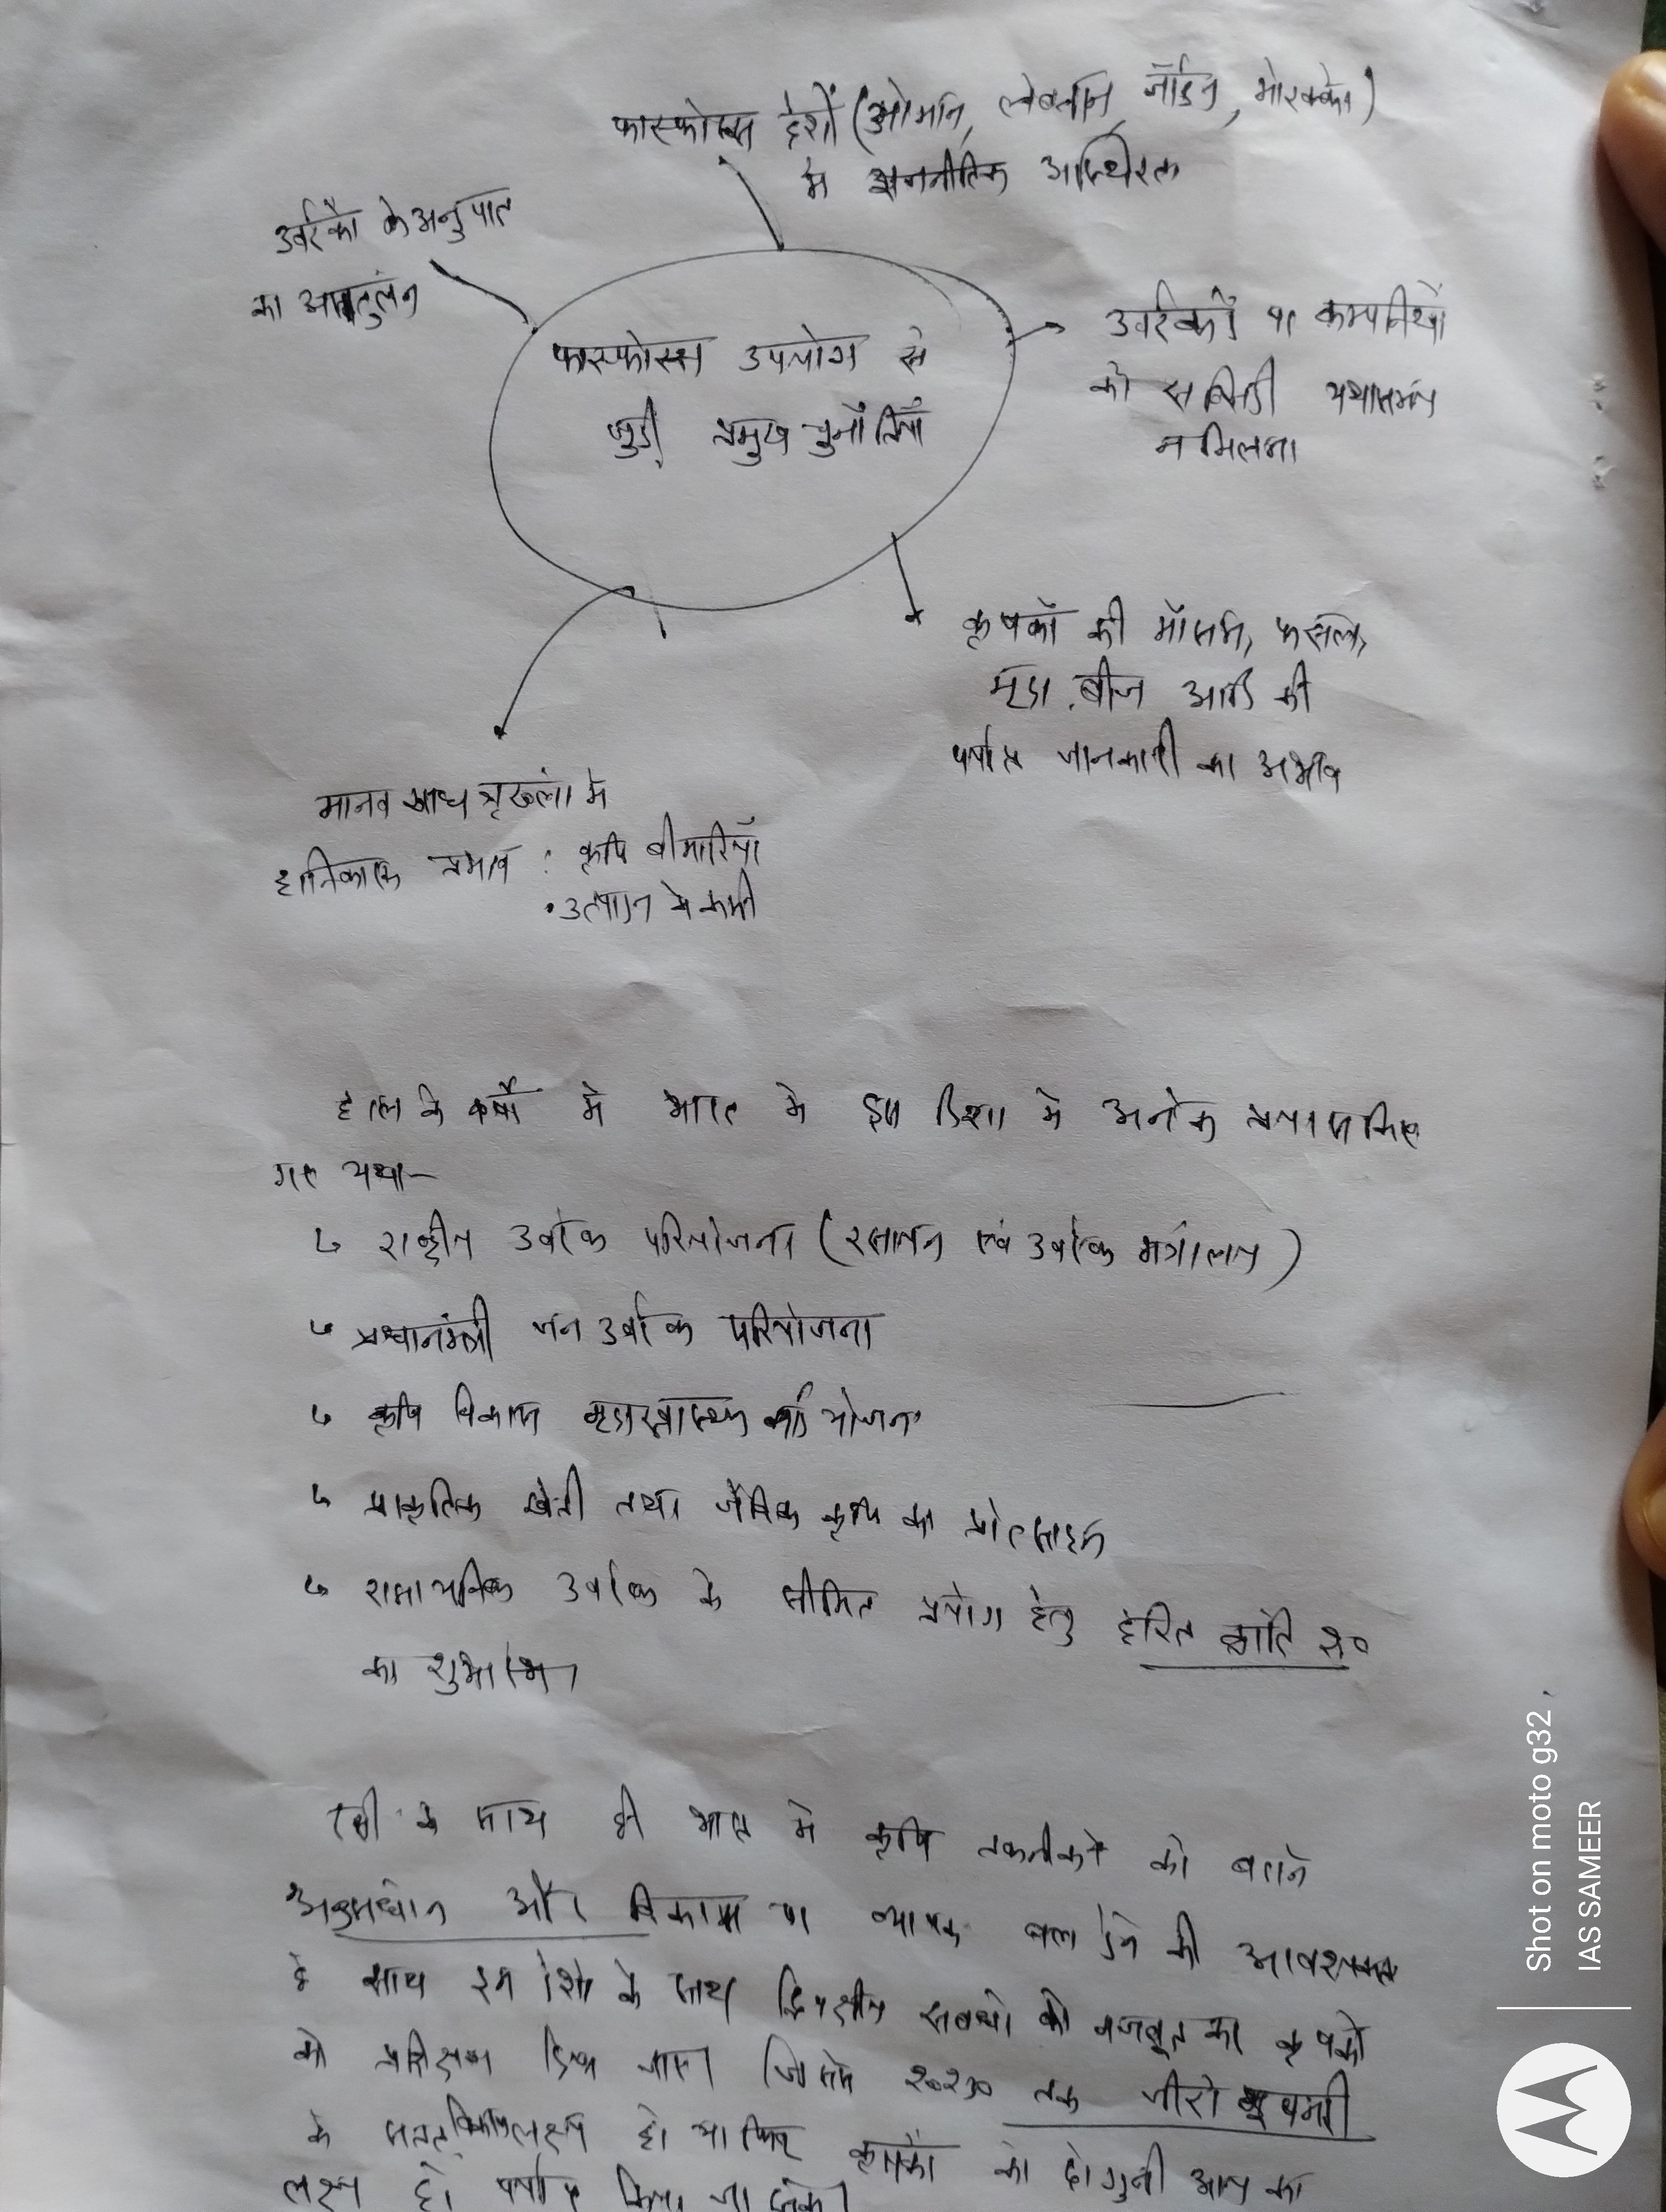 फास्फोरस देशों (ओमान, लेबनान, जॉर्डन, मोरक्को)
में राजनीतिक अस्थिरता
उर्वरकों के अनुपात
का असंतुलन
फास्फोरस उपयोग से
जुड़ी प्रमुख चुनौतियाँ
उर्वरकों पर कम्पनियों
को सब्सिडी यथासमय
न मिलना
कृषकों की मौसम, फसल,
मृदा, बीज आदि की
पर्याप्त जानकारी का अभाव
मानव खाद्य श्रृंखला में
हानिकारक प्रभाव : कृषि बीमारियाँ
• उत्पादन मे कमी
हाल के वर्षों में भारत मे इस दिशा मे अनेक प्रयास किए
गए यथा-
राष्ट्रीय उर्वरक परियोजना (रसायन एवं उर्वरक मंत्रालय)
प्रधानमंत्री जन उर्वरक परियोजना
कृषि विकास मृदा स्वास्थ्य कार्ड योजना
प्राकृतिक खेती तथा जैविक कृषि का प्रोत्साहन
रासायनिक उर्वरक के सीमित प्रयोग हेतु हरित क्रांति २.०
का शुभारंभ।
के साथ ही भारत मे कृषि तकनीको को
अनुसंधान और विकास पर व्यापक बल देने की आवश्यकता
है साथ इन देशो के साथ द्विपक्षीय संबंधो को मजबूत कर कृषको
को प्रशिक्षण दिया जाए। जिससे २०३० तक जीरो भुखमरी
के सतत विकास लक्ष्य हो या फिर कृषकों को दोगुनी आय का
लक्ष्य हो किया जा सके।
Shot on moto g32
IAS SAMEER